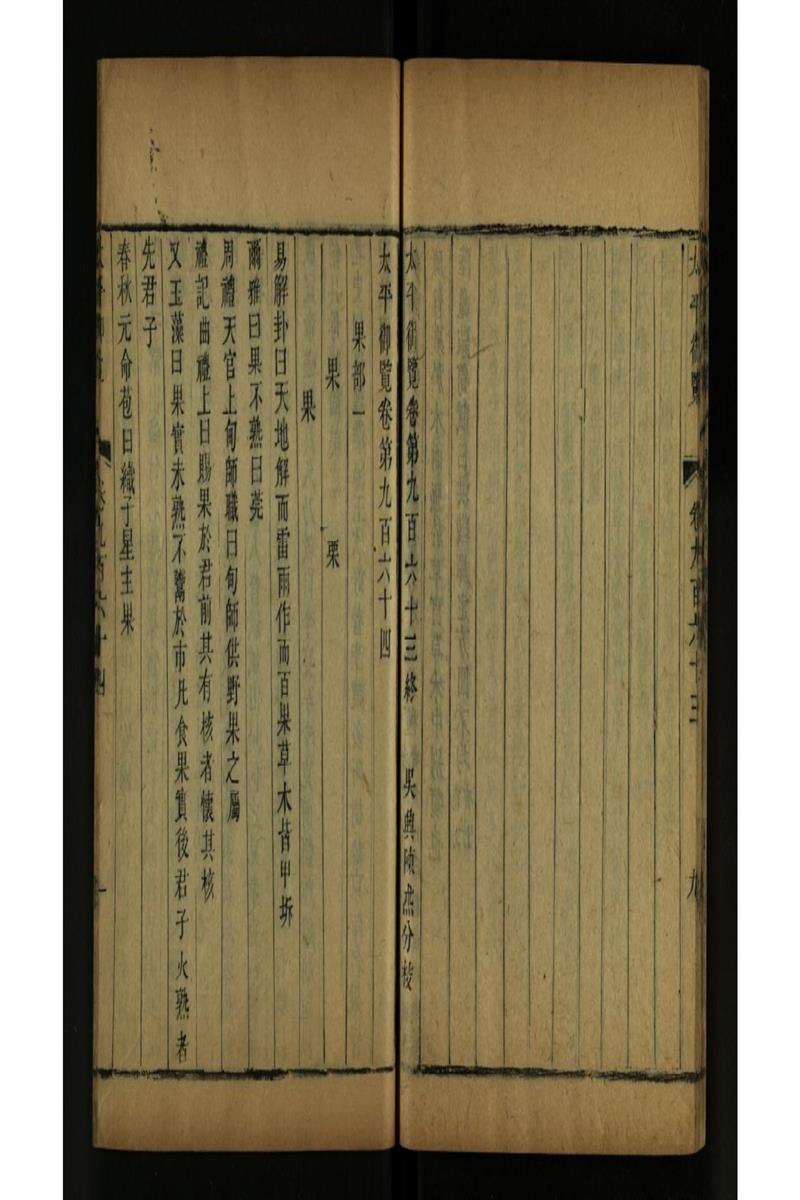 太平御覽 卷九百六十三 九
太平御覽卷第九百六十三終 吳興陳杰分校
太平御覽卷第九百六十四
果部一
果 栗
果
易解卦曰天地解而雷雨作而百果草木皆甲坼
爾雅曰果不熟曰荒
周禮天官上甸師職曰甸師供野果之屬
禮記曲禮上曰賜果於君前其有核者懷其核
又玉藻曰果實未熟不鬻於市凡食果實後君子火熟者
先君子
春秋元命苞曰織子星主果
太平御覽 卷九百六十四 一